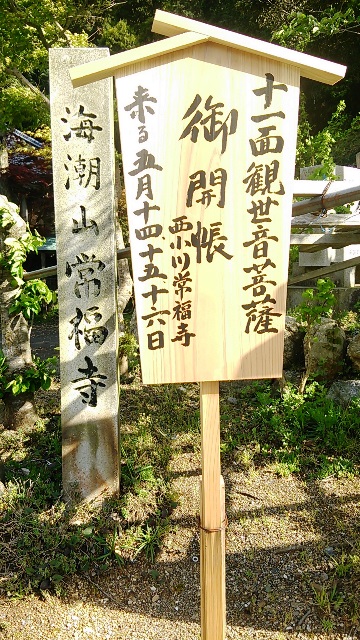 十一面観世音菩薩
御開帳
西小川常福寺
来る五月十四十五十六日
海潮山常福寺